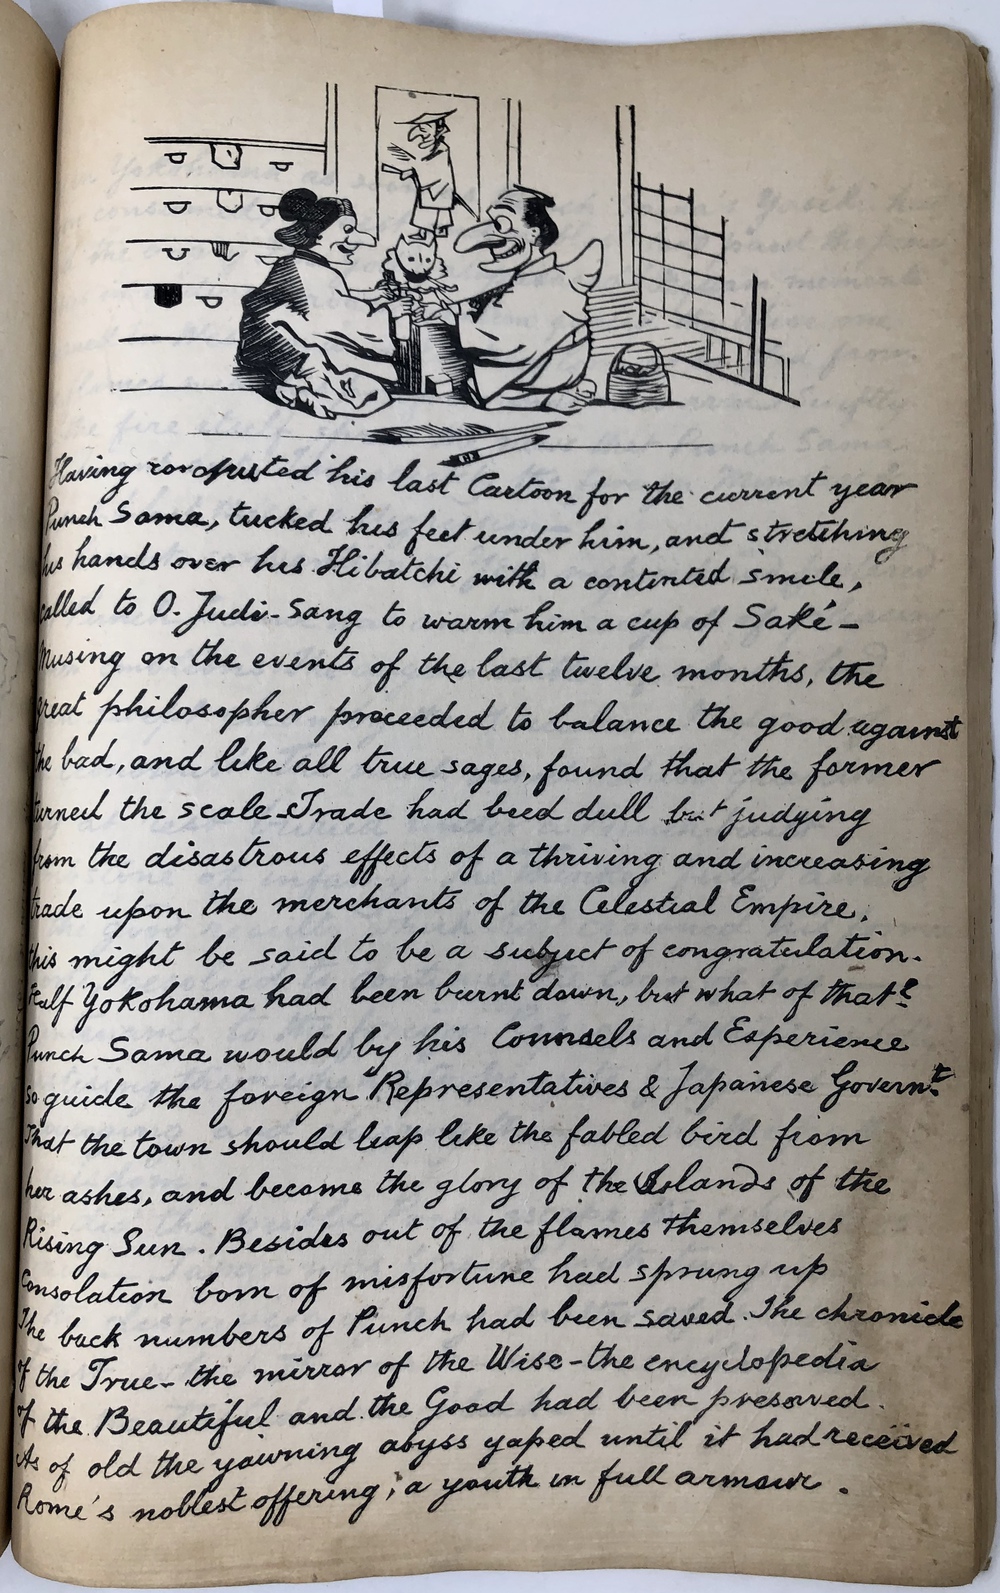 Having completed his last Cartoon for the current year
Punch Sama, tucked his feet under him, and stretching
his hands over his Hibatchi with a contented smile,
called to O. Judi-Sang to warm him a cup of Saké—
Musing on the events of the last twelve months, the
great philosopher proceeded to balance the good against
the bad, and like all true sages, found that the former
turned the scale—Trade had beed dull but judging
from the disastrous effects of a thriving and increasing
trade upon the merchants of the Celestial Empire,
this might be said to be a subject of congratulation.
Half Yokohama had been burnt down, but what of that?
Punch Sama would by his Counsels and Experience
so guide the foreign Representatives & Japanese Governt.
that the town should leap like the fabled bird from
her ashes, and become the glory of the Islands of the
Rising Sun. Besides out of the flames themselves
Consolation born of misfortune had sprung up
The back numbers of Punch had been saved. The chronicle
of the True— the mirror of the Wise—the encyclopedia
of the Beautiful and the Good had been preserved.
As of old the yawning abyss gaped until it had received
Rome's noblest offering; a youth in full armour.